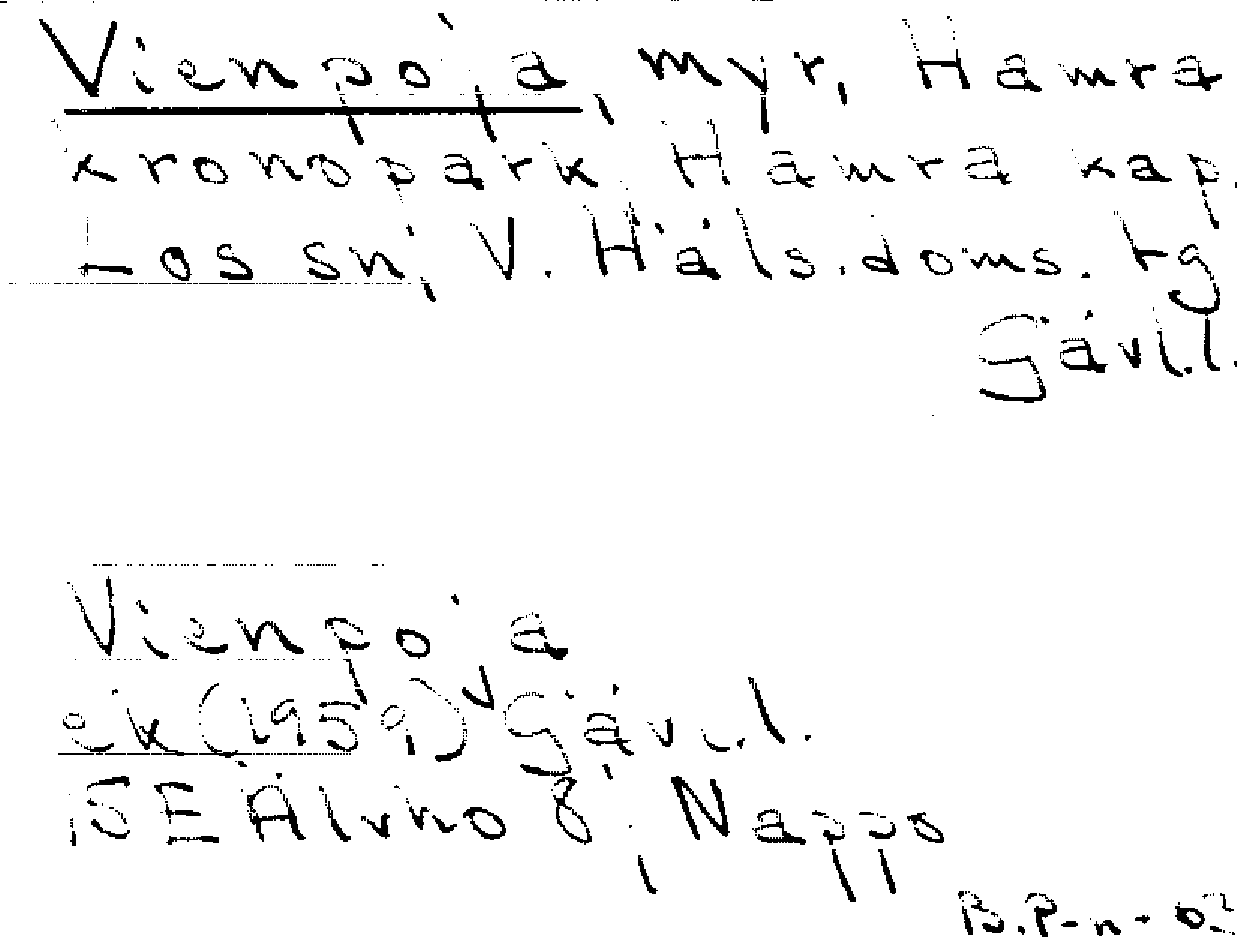 Vienpoja, myr, Hamra
kronopark, Hamra kap.
Los sn, V. Häls. doms. tg
Gävl.l.
Vienpoja
ek (1959) Gävl.l.
SE Älvho 8, Nappo
B.P-n - 02